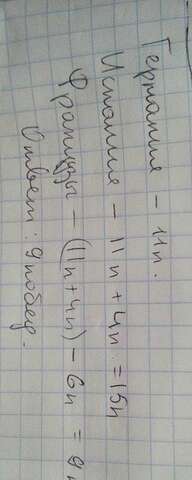 Германия - 11п.
Испания - 11п + 4п = 15п
Французы - (11п+4п) - 6п = 9п
Ответ: 9 побед.